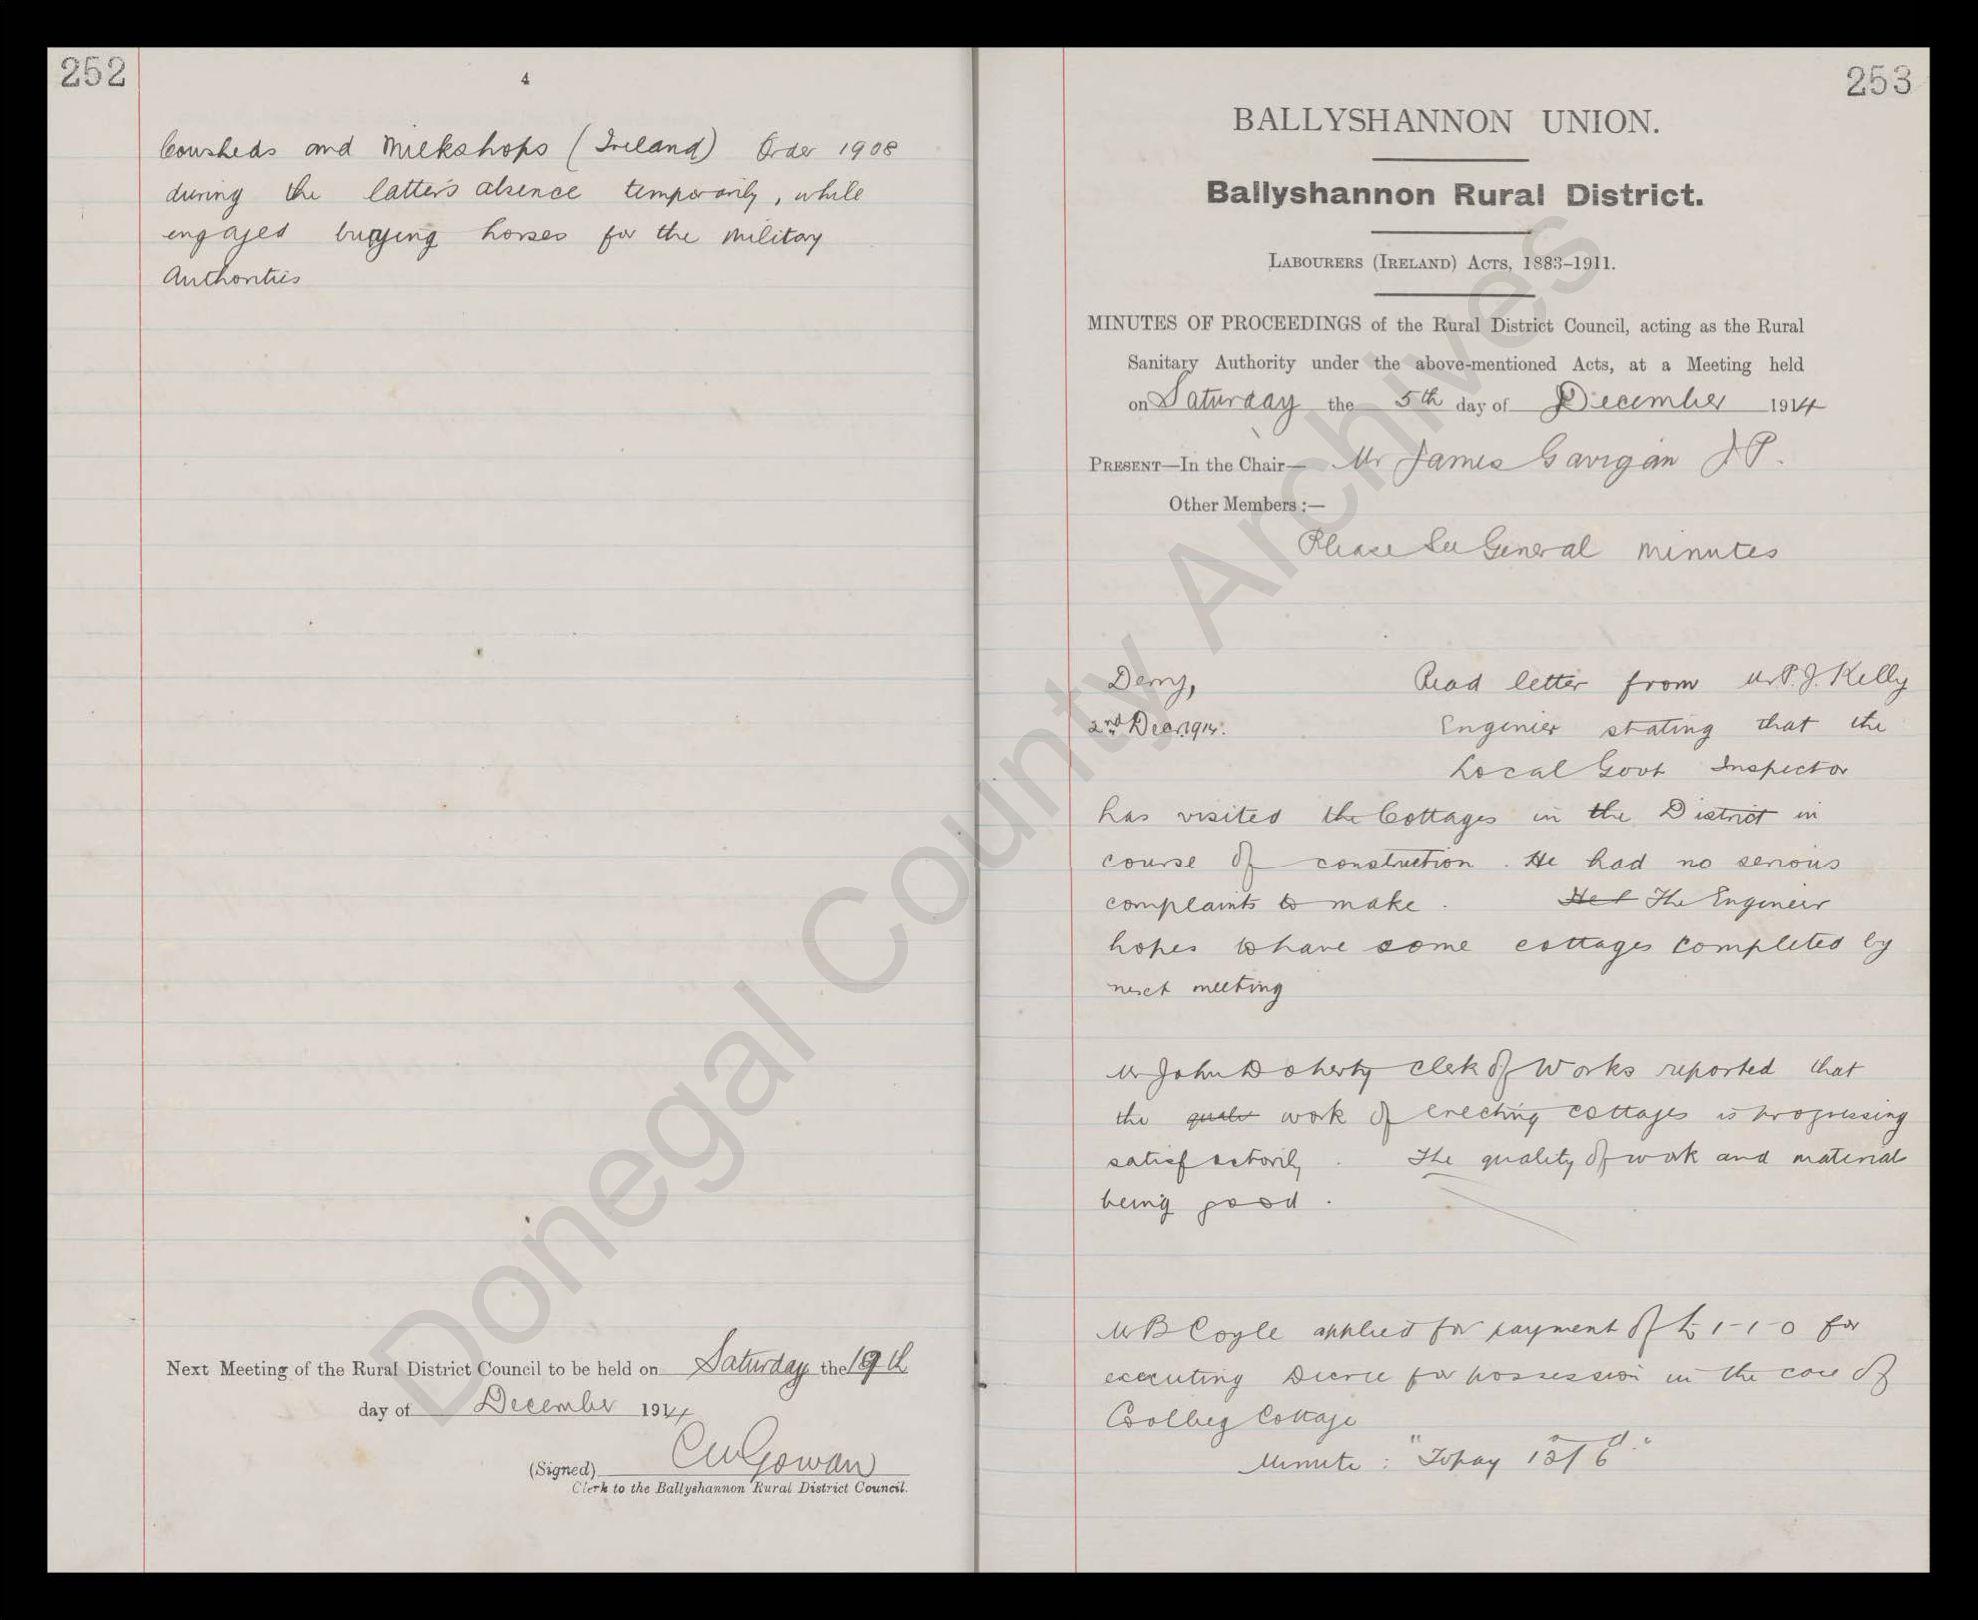 252
4
Cowsheds and Milkshops (Ireland) Order 1908
during the latter's absence temporarily, while
engaged buying horses for the Military
Authorities
Next Meeting of the Rural District Council to be held on Saturday the 19th
day of December 1914
(Signed) CWGowan
Clerk to the Ballyshannon Rural District Council.
253
BALLYSHANNON UNION.
Ballyshannon Rural District.
LABOURERS (IRELAND) ACTS, 1883–1911.
MINUTES OF PROCEEDINGS of the Rural District Council, acting as the Rural
Sanitary Authority under the above-mentioned Acts, at a Meeting held
on Saturday the 5th day of December 1914
PRESENT—In the Chair— Mr James Gavigan J P.
Other Members :—
Please See General minutes
Derry, Read letter from Mr P. J. Kelly
2nd Decr. 1914. Engineer stating that the
Local Govt Inspector
has visited the Cottages in the District in
course of construction. He had no serious
complaints to make. The Engineer
hopes to have some cottages completed by
next meeting
Mr John Doherty Clerk of Works reported that
the work of erecting cottages is progressing
satisfactorily. The quality of work and material
being good.
Mr B Coyle applied for payment of £1-1-0 for
executing Decree for possession in the case of
Coolbeg Cottage
Minute: "To pay
Donegal County Archives